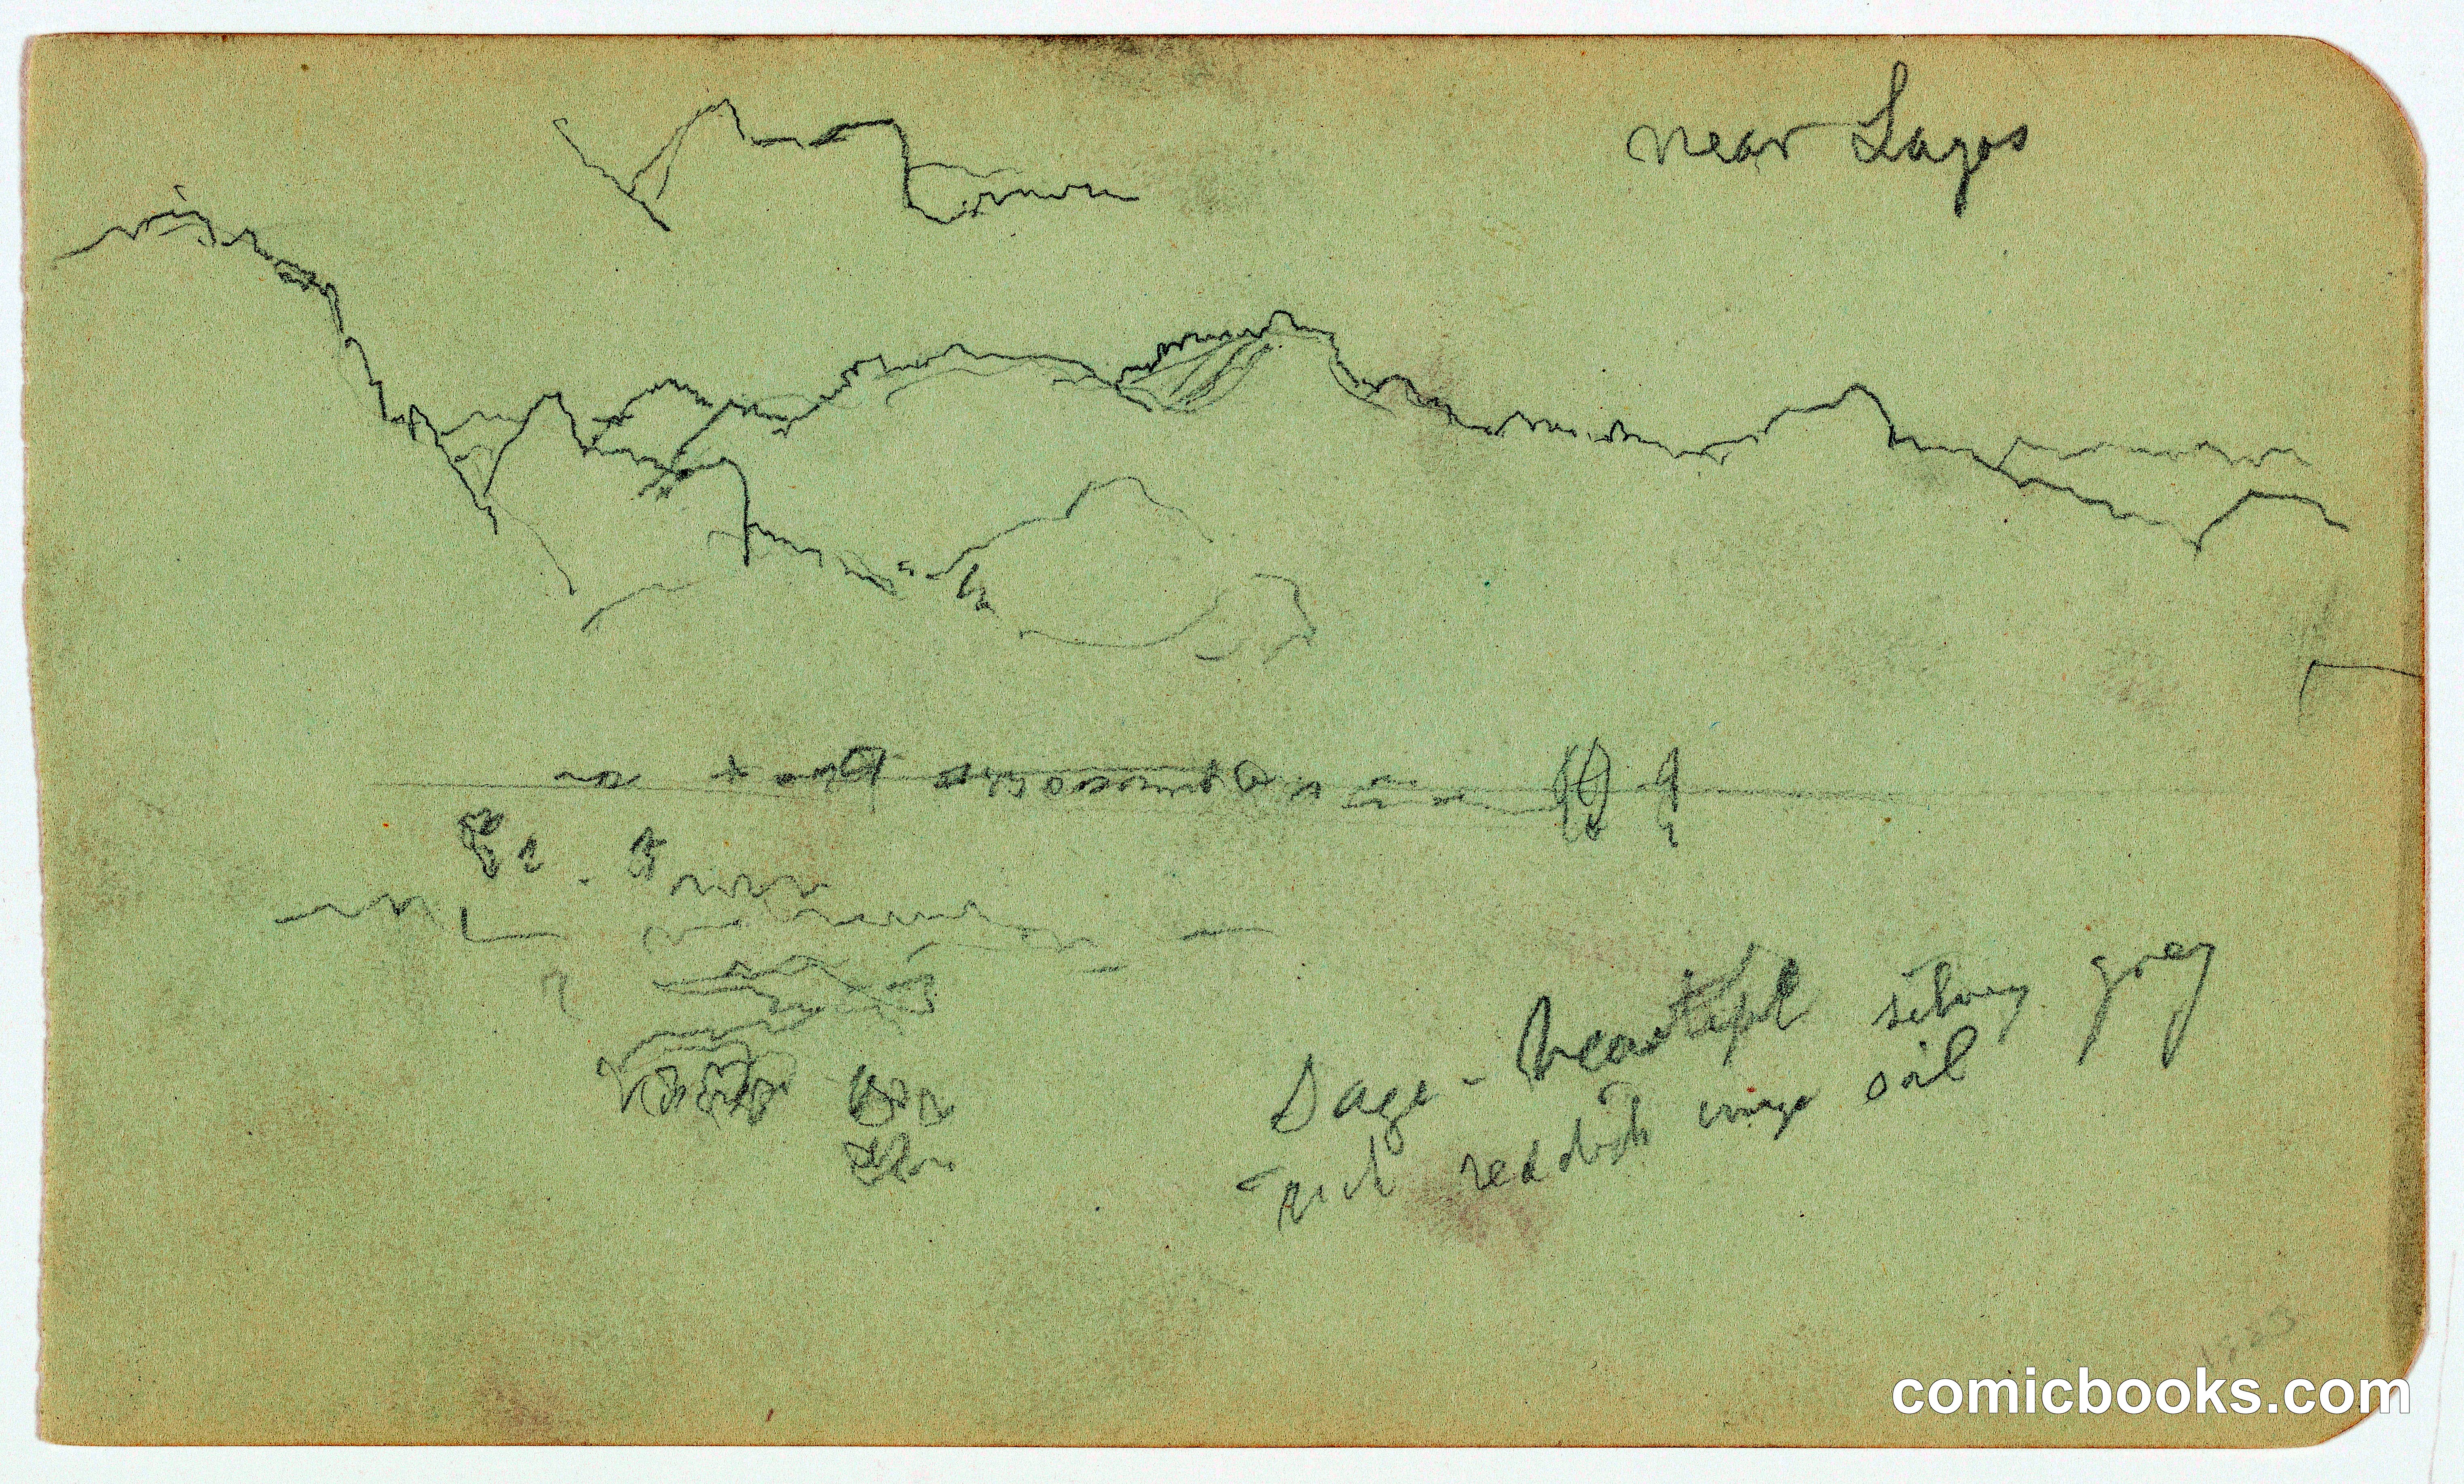 near Lagos
Sage - beautiful silvery grey
rich reddish soil
comicbooks.com